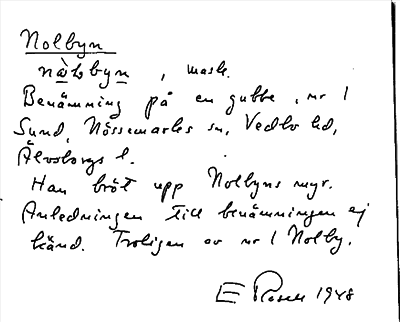 Nolbyn
nàlbyn, mask.
Benämning på en gubbe, nr 1
Sund, Nössemarks sn, Vedbo hd,
Älvsborgs l.
Han bröt upp Nolbyns myr.
Anledningen till benämningen ej
känd. Troligen av nr 1 Nolby.
E Rosell 1948